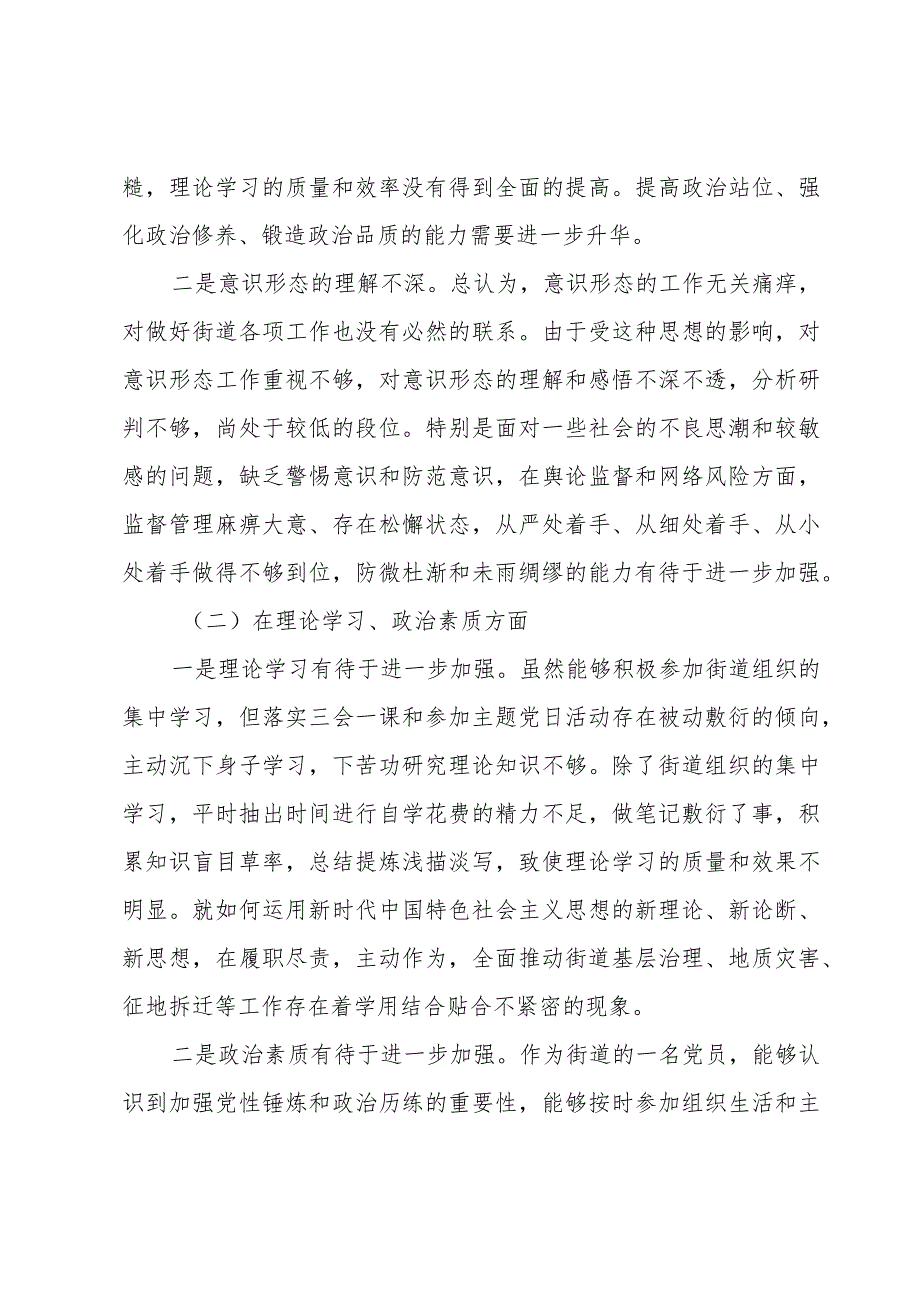 糙，理论学习的质量和效率没有得到全面的提高。提高政治站位、强
化政治修养、锻造政治品质的能力需要进一步升华。
二是意识形态的理解不深。总认为，意识形态的工作无关痛痒，
对做好街道各项工作也没有必然的联系。由于受这种思想的影响，对
意识形态工作重视不够，对意识形态的理解和感悟不深不透，分析研
判不够，尚处于较低的段位。特别是面对一些社会的不良思潮和较敏
感的问题，缺乏警惕意识和防范意识，在舆论监督和网络风险方面，
监督管理麻痹大意、存在松懈状态，从严处着手、从细处着手、从小
处着手做得不够到位，防微杜渐和未雨绸缪的能力有待于进一步加强。
（二）在理论学习、政治素质方面
一是理论学习有待于进一步加强。虽然能够积极参加街道组织的
集中学习，但落实三会一课和参加主题党日活动存在被动敷衍的倾向，
主动沉下身子学习，下苦功研究理论知识不够。除了街道组织的集中
学习，平时抽出时间进行自学花费的精力不足，做笔记敷衍了事，积
累知识盲目草率，总结提炼浅描淡写，致使理论学习的质量和效果不
明显。就如何运用新时代中国特色社会主义思想的新理论、新论断、
新思想，在履职尽责，主动作为，全面推动街道基层治理、地质灾害、
征地拆迁等工作存在着学用结合贴合不紧密的现象。
二是政治素质有待于进一步加强。作为街道的一名党员，能够认
识到加强党性锤炼和政治历练的重要性，能够按时参加组织生活和主